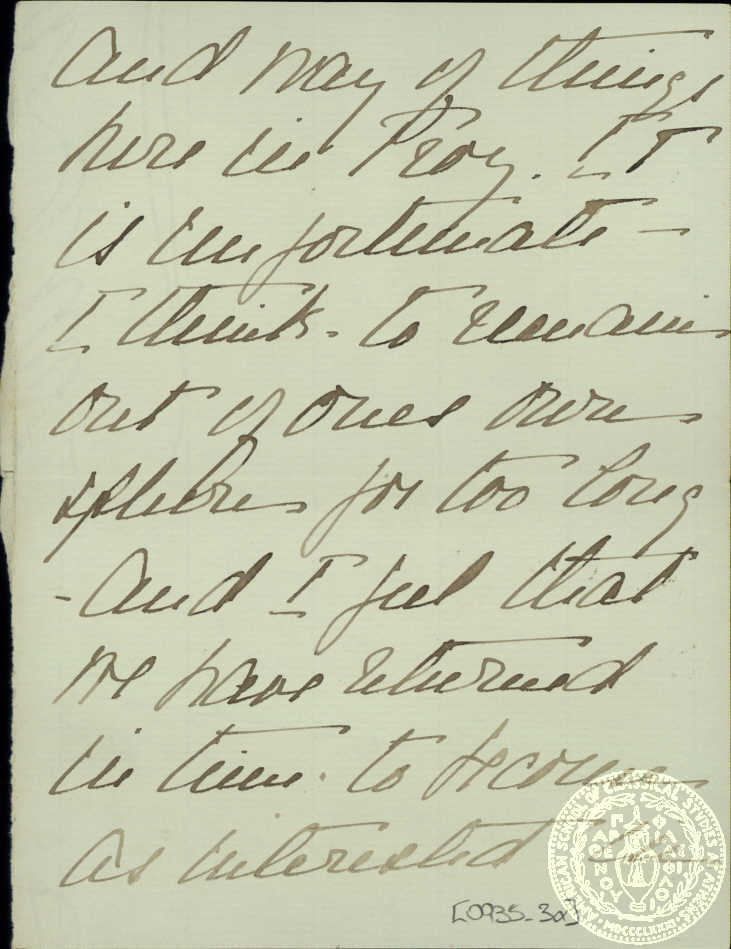 and way of things
here in Troy. It
is unfortunate -
I think - to remain
out of ones own
sphere for too long
- and I feel that
we have returned
in time. to become
as interested
[0935-3a]
AMERICAN SCHOOL OF CLASSICAL STUDIES AT ATHENS
MDCCCLXXXI